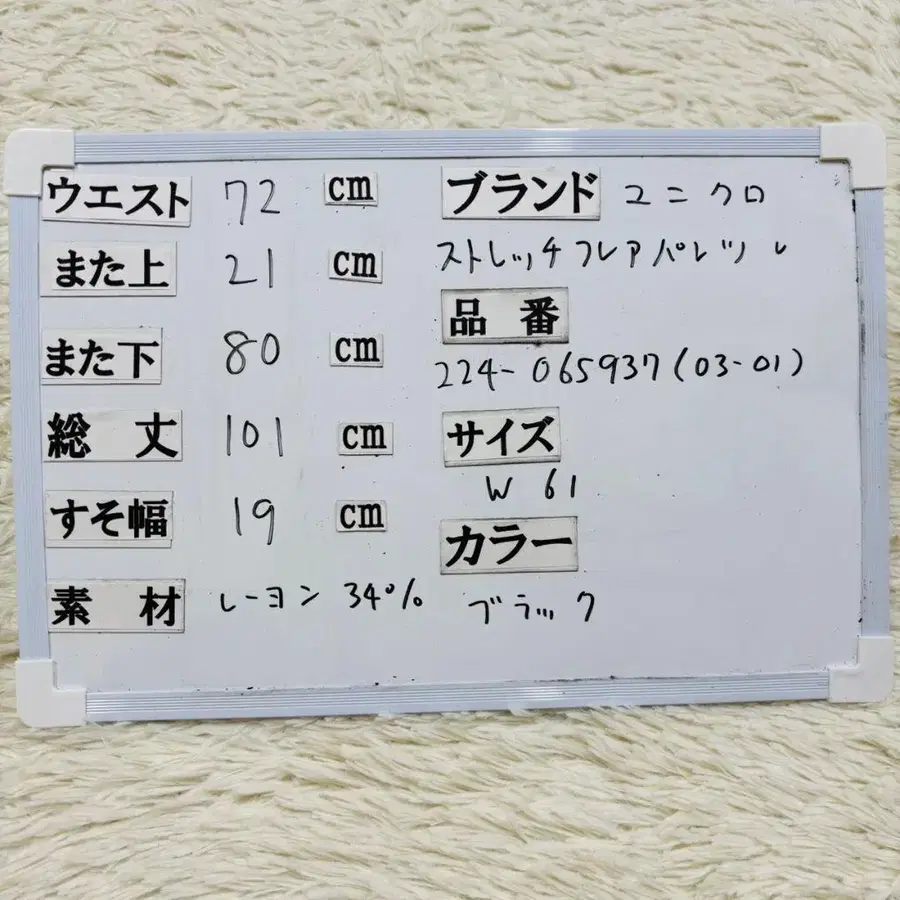 ウエスト 72 cm
また上 21 cm
また下 80 cm
総 丈 101 cm
すそ幅 19 cm
素 材 レーヨン 34%
ブランド ユニクロ
ストレッチフレアパンツ
品 番
224-065937(03-01)
サイズ
W 61
カラー
ブラック